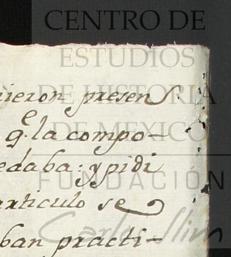 CENTRO DE
ESTUDIOS
DE HISTORIA
DE MÉXICO
FUNDACIÓN
Carlos Slim
ieron presen
e
q. la compo-
edaba: y pidi
articulo se
ban practi-